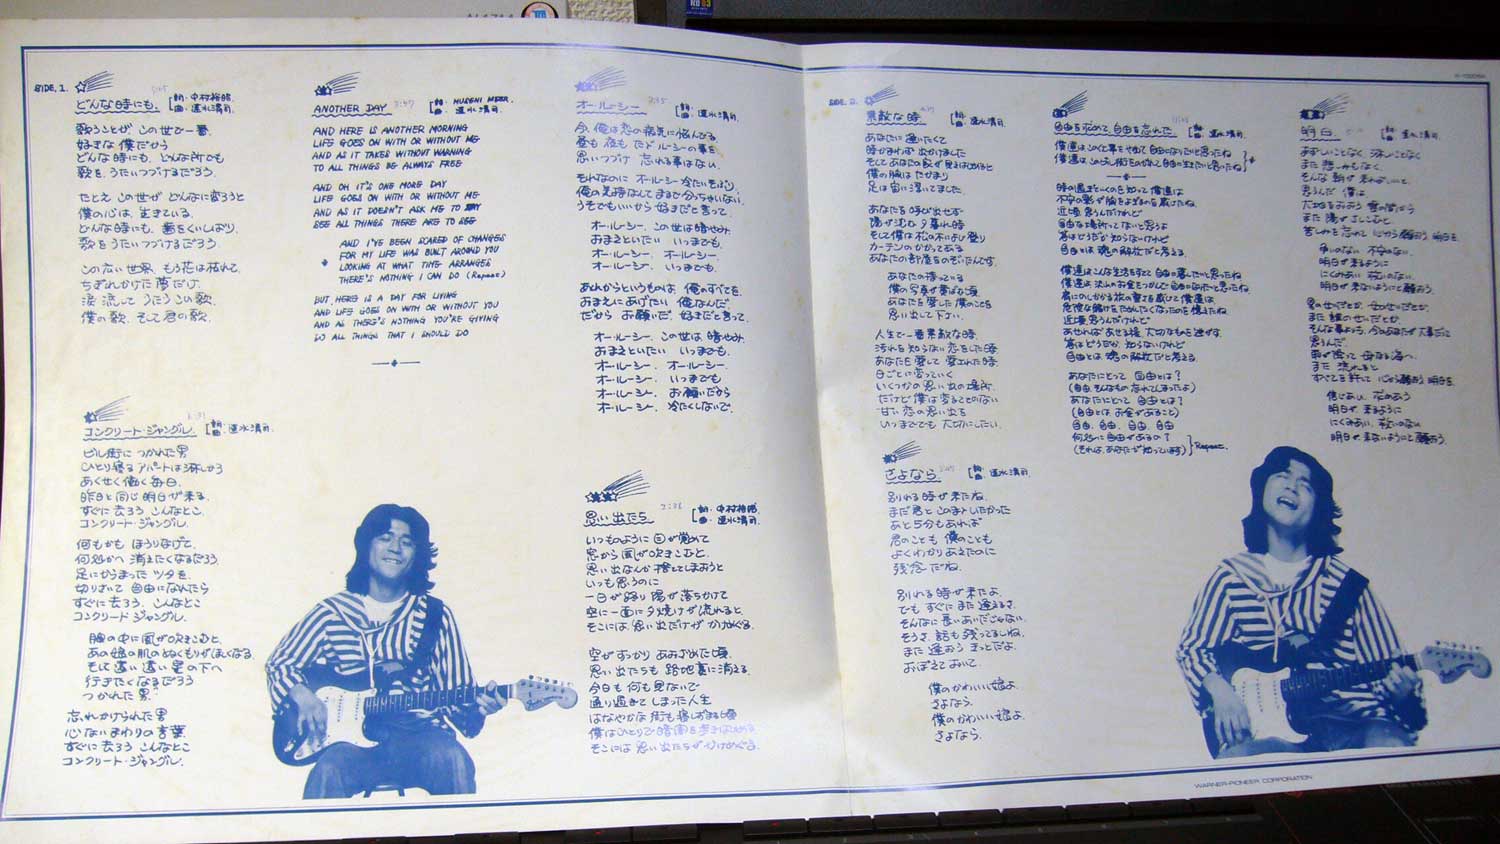 SIDE. 1.
どんな時にも.
詞: 中村裕昭
曲: 速水清司.
歌うことが この世で一番.
好きな 僕だから
どんな時にも. どんな所でも
歌を. うたいつづけるだろう.
たとえ この世が どんなに変ろうと
僕の心は. 生きている.
どんな時にも. 夢をくいしばり.
歌をうたいつづけるだろう.
この広い世界. もう花は枯れて.
ちぎれかけた 夢だけ.
涙 流して うたう この歌.
僕の歌. そして君の歌.
コンクリート・ジャングル.
詞曲: 速水清司.
ビル街に つかれた男
ひとり寝る アパートは
あくせく働く毎日.
昨日と同じ 明日が来る.
すぐに 去ろう こんなとこ.
コンクリート・ジャングル.
何もかも ほうりなげて.
何処かへ 消えたくなるだろう.
足にからまった ツタを.
切りさいて 自由になれたら
すぐに去ろう. こんなとこ
コンクリート ジャングル.
胸の中に 風が吹きこむと.
あの娘の肌のぬくもりがほしくなる.
そして 遠い 遠い 星の下へ
行きたくなるだろう
つかれた男.
忘れかけられた男
心ない まわりの 言葉.
すぐに 去ろう こんなとこ
コンクリート・ジャングル.
ANOTHER DAY
3:57
曲: 速水清司.
AND HERE IS ANOTHER MORNING
LIFE GOES ON WITH OR WITHOUT ME
AND AS IT TAKES WITHOUT WARNING
TO ALL THINGS BE ALWAYS FREE
AND OH IT'S ONE MORE DAY
LIFE GOES ON WITH OR WITHOUT ME
AND AS IT DOESN'T ASK ME TO STAY
SEE ALL THINGS THERE ARE TO SEE
AND I'VE BEEN SCARED OF CHANGES
FOR MY LIFE WAS BUILT AROUND YOU
LOOKING AT WHAT TIME ARRANGES
THERE'S NOTHING I CAN DO (Repeat)
BUT HERE IS A DAY FOR LIVING
AND LIFE GOES ON WITH OR WITHOUT YOU
AND AS THERE'S NOTHING YOU'RE GIVING
SO ALL THINGS THAT I SHOULD DO
オー・ルーシー
詞曲: 速水清司.
今. 俺は恋の病気に悩んでる.
昼も 夜も ただ ルーシーの事を.
思いつづけ 忘れる事はない.
それなのに オー・ルーシー 冷たいそぶり.
俺の気持なんて まるで分っちゃいない.
うそでもいいから 好きだと言って.
オー・ルーシー. この世は暗やみ.
おまえといたい いつまでも.
オー・ルーシー. オー・ルーシー.
オー・ルーシー. いつまでも.
あれからというものは 俺のすべてを.
おまえにあげたい 俺なんだ.
だから お願いだ. 好きだと言って.
オー・ルーシー. この世は 暗やみ.
おまえといたい いつまでも.
オー・ルーシー. オー・ルーシー.
オー・ルーシー いつまでも
オー・ルーシー. お願いだから
オー・ルーシー. 冷たくしないで.
思い出たち
詞: 中村裕昭.
曲: 速水清司.
いつものように 目が覚めて
窓から 風が吹きこむと.
思い出なんか 捨ててしまおうと
いつも 思うのに
一日が終り 陽が落ちかけて
空に一面に 夕焼けが流れると.
そこには. 思い出だけが かけめぐる.
空がすっかり あおざめた頃.
思い出たちも 路地裏に消える.
今日も 何も見ないで
通り過ぎて しまった 人生
はなやかな 街も 寝しずまる頃
僕はひとりで 暗闇を歩きはじめる
そこには 思い出たちがかけめぐる.
SIDE. 2.
素敵な時
詞曲: 速水清司.
あなたに逢いたくて
時がまわず 出かけました
そしてあなたの家が見えはじめると
僕の胸は たかまり
足は宙に浮いてました
あなたを呼び出せず
陽が沈む 夕暮れ時
そして僕は 松の木によじ登り
カーテンのかかってある
あなたの部屋をのぞいたんです.
あなたの待っている
僕の写真が黄ばむ頃
あなたを愛した 僕のことを
思い出して下さい.
人生で一番素敵な時.
汚れを知らない恋をした時.
あなたを愛して 愛された時.
日ごとに変っていく
いくつかの思い出の場所.
だけど 僕は 変ることのない
甘い恋の思い出を
いつまででも 大切にしたい.
さよなら.
詞曲: 速水清司.
別れる時が来たね.
まだ君と このまま いたかった
あと5分もあれば
君のことも 僕のことも
よくわかりあえたのに
残念 だね.
別れる時が来たよ.
でも すぐにまた逢えるさ.
そんなに長いあいだじゃない.
そうさ. 話も残ってるしね.
また逢おう きっとだよ.
おぼえておいて.
僕のかわいい娘よ
さよなら.
僕のかわいい娘よ.
さよなら.
自由を求めて. 自由を忘れた.
詞曲: 速水清司.
時の過ぎていくのを知って 僕達は
自由な場所ってないと思うよ
君はどうだか知らないけれど
自由とは 魂の解放だと考える.
僕達はこんな生活をすてて 自由に暮したいと思ったね
近頃思うんだけれど
あせれば あせる程 大切なものを逃がす.
君はどうだか. 知らないけれど
自由とは 魂の解放だと考える.
あなたにとって 自由とは?
(自由. そんなもの 忘れてしまったよ)
あなたにとって 自由とは?
(自由とは お金があること)
自由. 自由. 自由. 自由
何処に自由があるの?
(それは. あなたが知っています)
Repeat.
明日.
詞曲: 速水清司.
まずしいことなく. 淋しいことなく
また 悲しみもなく.
そんな朝が 来ればいいと.
思うんだ 僕は.
争いのない 不安のない.
明日が来るように
にくみあい 救いのない.
明日が来ないように願おう.
思うんだ.
雨が降って 母なる海へ.
また 流れると
信じあい. 求めあう
明日が 来るように
にくみあい. 救いのない
明日が来ないようにと願おう.
WARNER-PIONEER CORPORATION